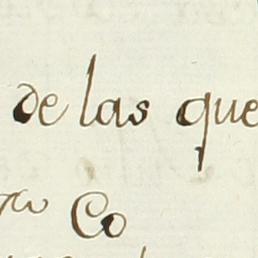 de las que
Co